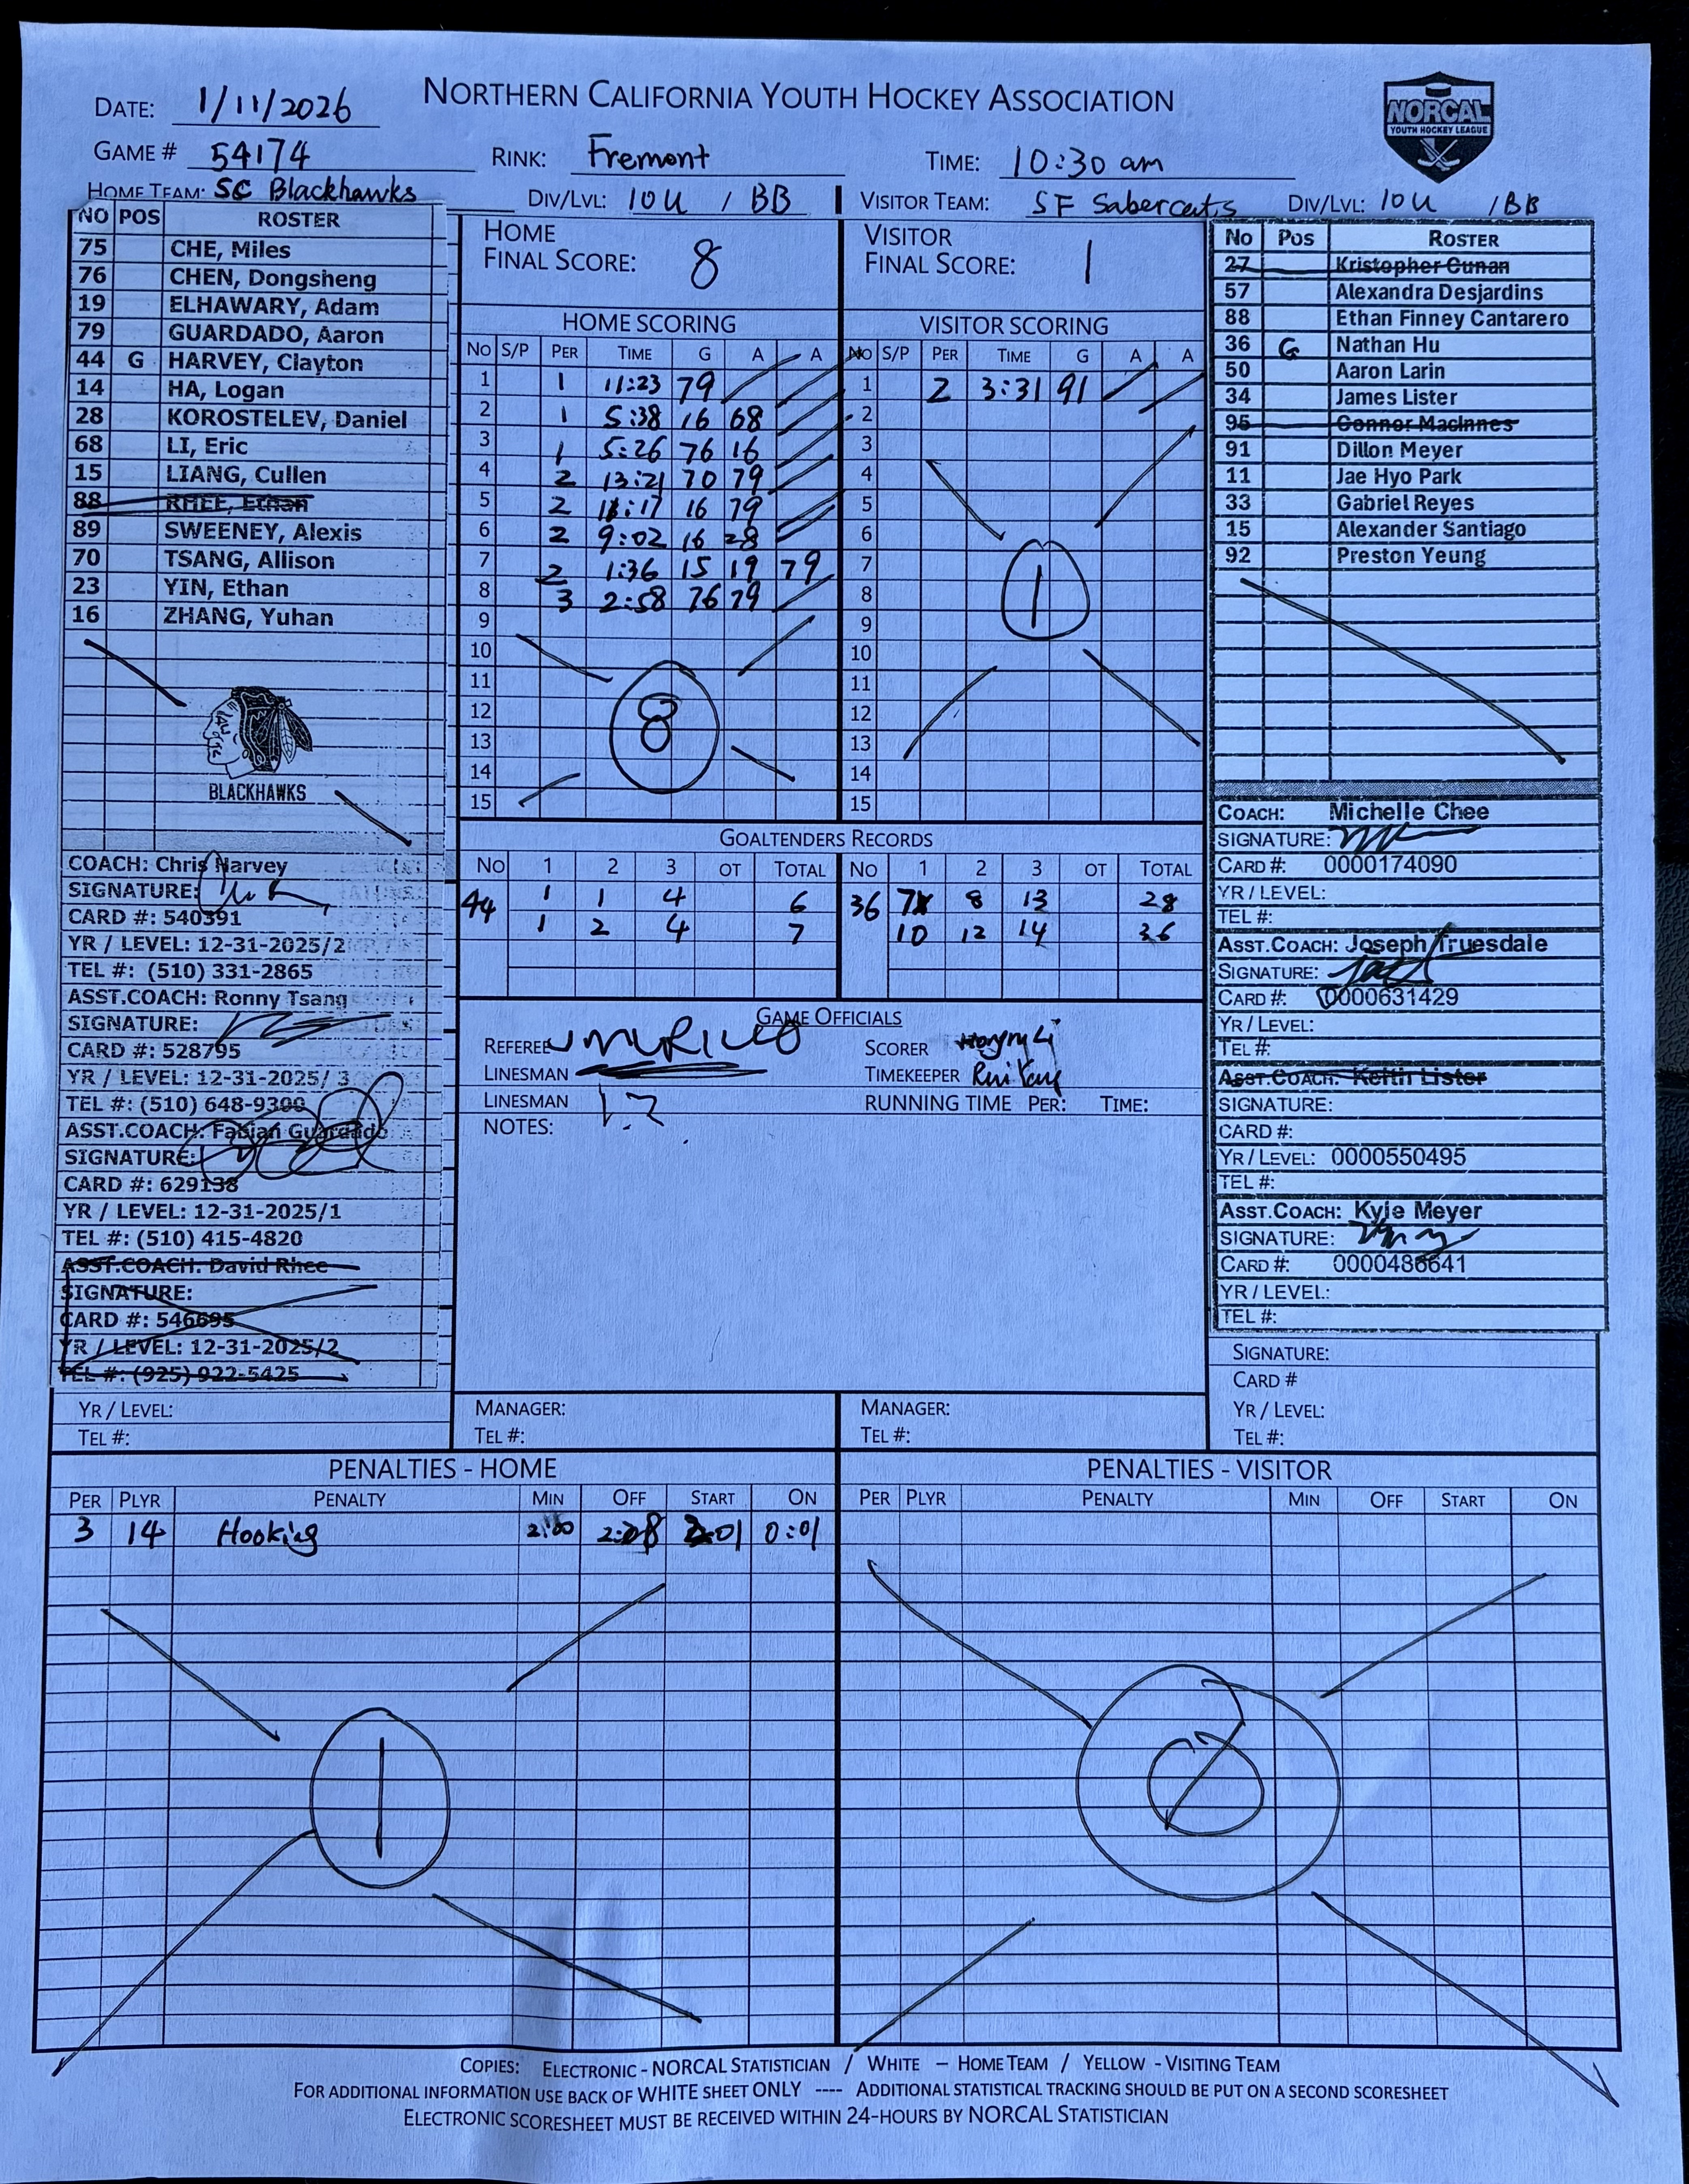 NORTHERN CALIFORNIA YOUTH HOCKEY ASSOCIATION
NORCAL
YOUTH HOCKEY LEAGUE
DATE: 1/11/2026
GAME # 54174 RINK: Fremont TIME: 10:30 am
HOME TEAM: SC Blackhawks DIV/LVL: 10U / BB VISITOR TEAM: SF Sabercats DIV/LVL: 10U / BB
NO POS ROSTER
75 CHE, Miles
76 CHEN, Dongsheng
19 ELHAWARY, Adam
79 GUARDADO, Aaron
44 G HARVEY, Clayton
14 HA, Logan
28 KOROSTELEV, Daniel
68 LI, Eric
15 LIANG, Cullen
88 RHEE, Ethan
89 SWEENEY, Alexis
70 TSANG, Allison
23 YIN, Ethan
16 ZHANG, Yuhan
BLACKHAWKS
COACH: Chris Harvey
SIGNATURE:
CARD #: 540391
YR / LEVEL: 12-31-2025/2
TEL #: (510) 331-2865
ASST.COACH: Ronny Tsang
SIGNATURE:
CARD #: 528795
YR / LEVEL: 12-31-2025/ 3
TEL #: (510) 648-9300
ASST.COACH: Fabian Guardado
SIGNATURE:
CARD #: 629138
YR / LEVEL: 12-31-2025/1
TEL #: (510) 415-4820
ASST.COACH: David Rhee
SIGNATURE:
CARD #: 546695
YR / LEVEL: 12-31-2025/2
TEL #: (925) 922-5425
YR / LEVEL:
TEL #:
HOME
FINAL SCORE: 8
HOME SCORING
NO S/P PER TIME G A A
1 1 11:23 79
2 1 5:38 16 68
3 1 5:26 76 16
4 2 13:21 70 79
5 2 11:17 16 79
6 2 9:02 16 28
7 2 1:36 15 19 79
8 3 2:58 76 79
9
10
11
12
13
14
15
8
VISITOR
FINAL SCORE: 1
VISITOR SCORING
NO S/P PER TIME G A A
1 2 3:31 91
2
3
4
5
6
7
8
9
10
11
12
13
14
15
1
GOALTENDERS RECORDS
NO 1 2 3 OT TOTAL NO 1 2 3 OT TOTAL
44 1 1 4 6 36 7 8 13 28
1 2 4 7 10 12 14 36
GAME OFFICIALS
REFEREE J MURILLO SCORER
LINESMAN TIMEKEEPER
LINESMAN RUNNING TIME PER: TIME:
NOTES:
MANAGER:
TEL #:
MANAGER:
TEL #:
NO POS ROSTER
27 Kristopher Cunan
57 Alexandra Desjardins
88 Ethan Finney Cantarero
36 G Nathan Hu
50 Aaron Larin
34 James Lister
95 Connor MacInnes
91 Dillon Meyer
11 Jae Hyo Park
33 Gabriel Reyes
15 Alexander Santiago
92 Preston Yeung
COACH: Michelle Chee
SIGNATURE:
CARD #: 0000174090
YR / LEVEL:
TEL #:
ASST.COACH: Joseph Truesdale
SIGNATURE:
CARD #: 0000631429
YR / LEVEL:
TEL #:
ASST.COACH: Keith Lister
SIGNATURE:
CARD #:
YR / LEVEL: 0000550495
TEL #:
ASST.COACH: Kyle Meyer
SIGNATURE:
CARD #: 0000486641
YR / LEVEL:
TEL #:
SIGNATURE:
CARD #
YR / LEVEL:
TEL #:
PENALTIES - HOME
PER PLYR PENALTY MIN OFF START ON
3 14 Hooking 2:00 2:01 0:01
1
PENALTIES - VISITOR
PER PLYR PENALTY MIN OFF START ON
COPIES: ELECTRONIC - NORCAL STATISTICIAN / WHITE – HOME TEAM / YELLOW - VISITING TEAM
FOR ADDITIONAL INFORMATION USE BACK OF WHITE SHEET ONLY ---- ADDITIONAL STATISTICAL TRACKING SHOULD BE PUT ON A SECOND SCORESHEET
ELECTRONIC SCORESHEET MUST BE RECEIVED WITHIN 24-HOURS BY NORCAL STATISTICIAN